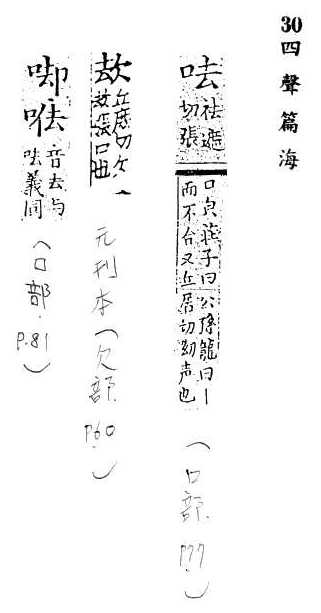 30 四聲篇海
呿 祛遮
切張
口皃莊子曰公孫龍曰丨
而不合又丘居切 声也
(口部. P.77)
㰦 丘庶切欠
㰦張口也
元刊本(欠部. P.60)
音去与
呿義同
(口部. P.81)